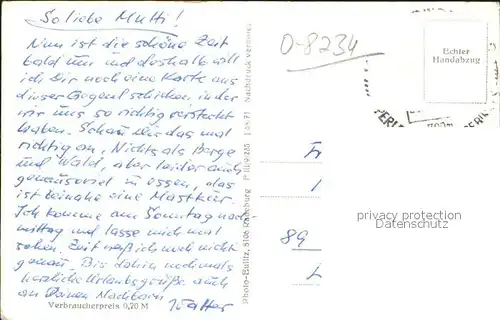 So liebe Mutti!
Nun ist die schöne Zeit
bald um und deshalb will
ich Dir noch eine Karte aus
dieser Gegend schicken, in der
wir uns so richtig versteckt
haben. Schau Dir das mal
richtig an, Nichts als Berge
und Wald, aber leider auch
genausoviel zu essen, das
ist beinahe eine Mastkur.
Ich komme am Sonntag nach-
mittag und lasse mich mal
sehen. Zeit weiß ich noch nicht
genau. Bis dahin nochmals
herzliche Urlaubsgrüße auch
an Deinen Nachbarn
Verbraucherpreis 0,20 M
Photo-Eulitz, 8106 Radeburg
Nachdruck verboten
0-8234
Echter
Handabzug
Fr
1
89
L
privacy protection
Datenschutz